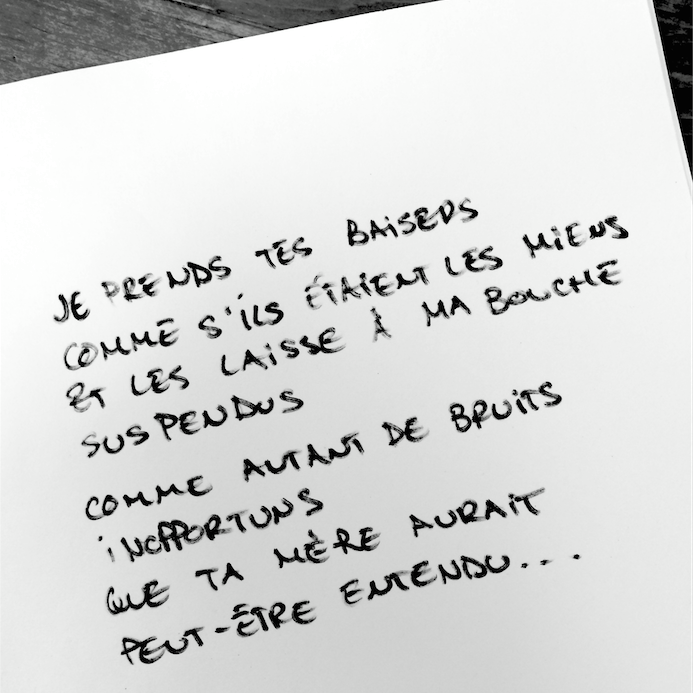 JE PRENDS TES BAISERS
COMME S'ILS ÉTAIENT LES MIENS
ET LES LAISSE À MA BOUCHE
SUSPENDUS
COMME AUTANT DE BRUITS
INOPPORTUNS
QUE TA MÈRE AURAIT
PEUT-ÊTRE ENTENDU...